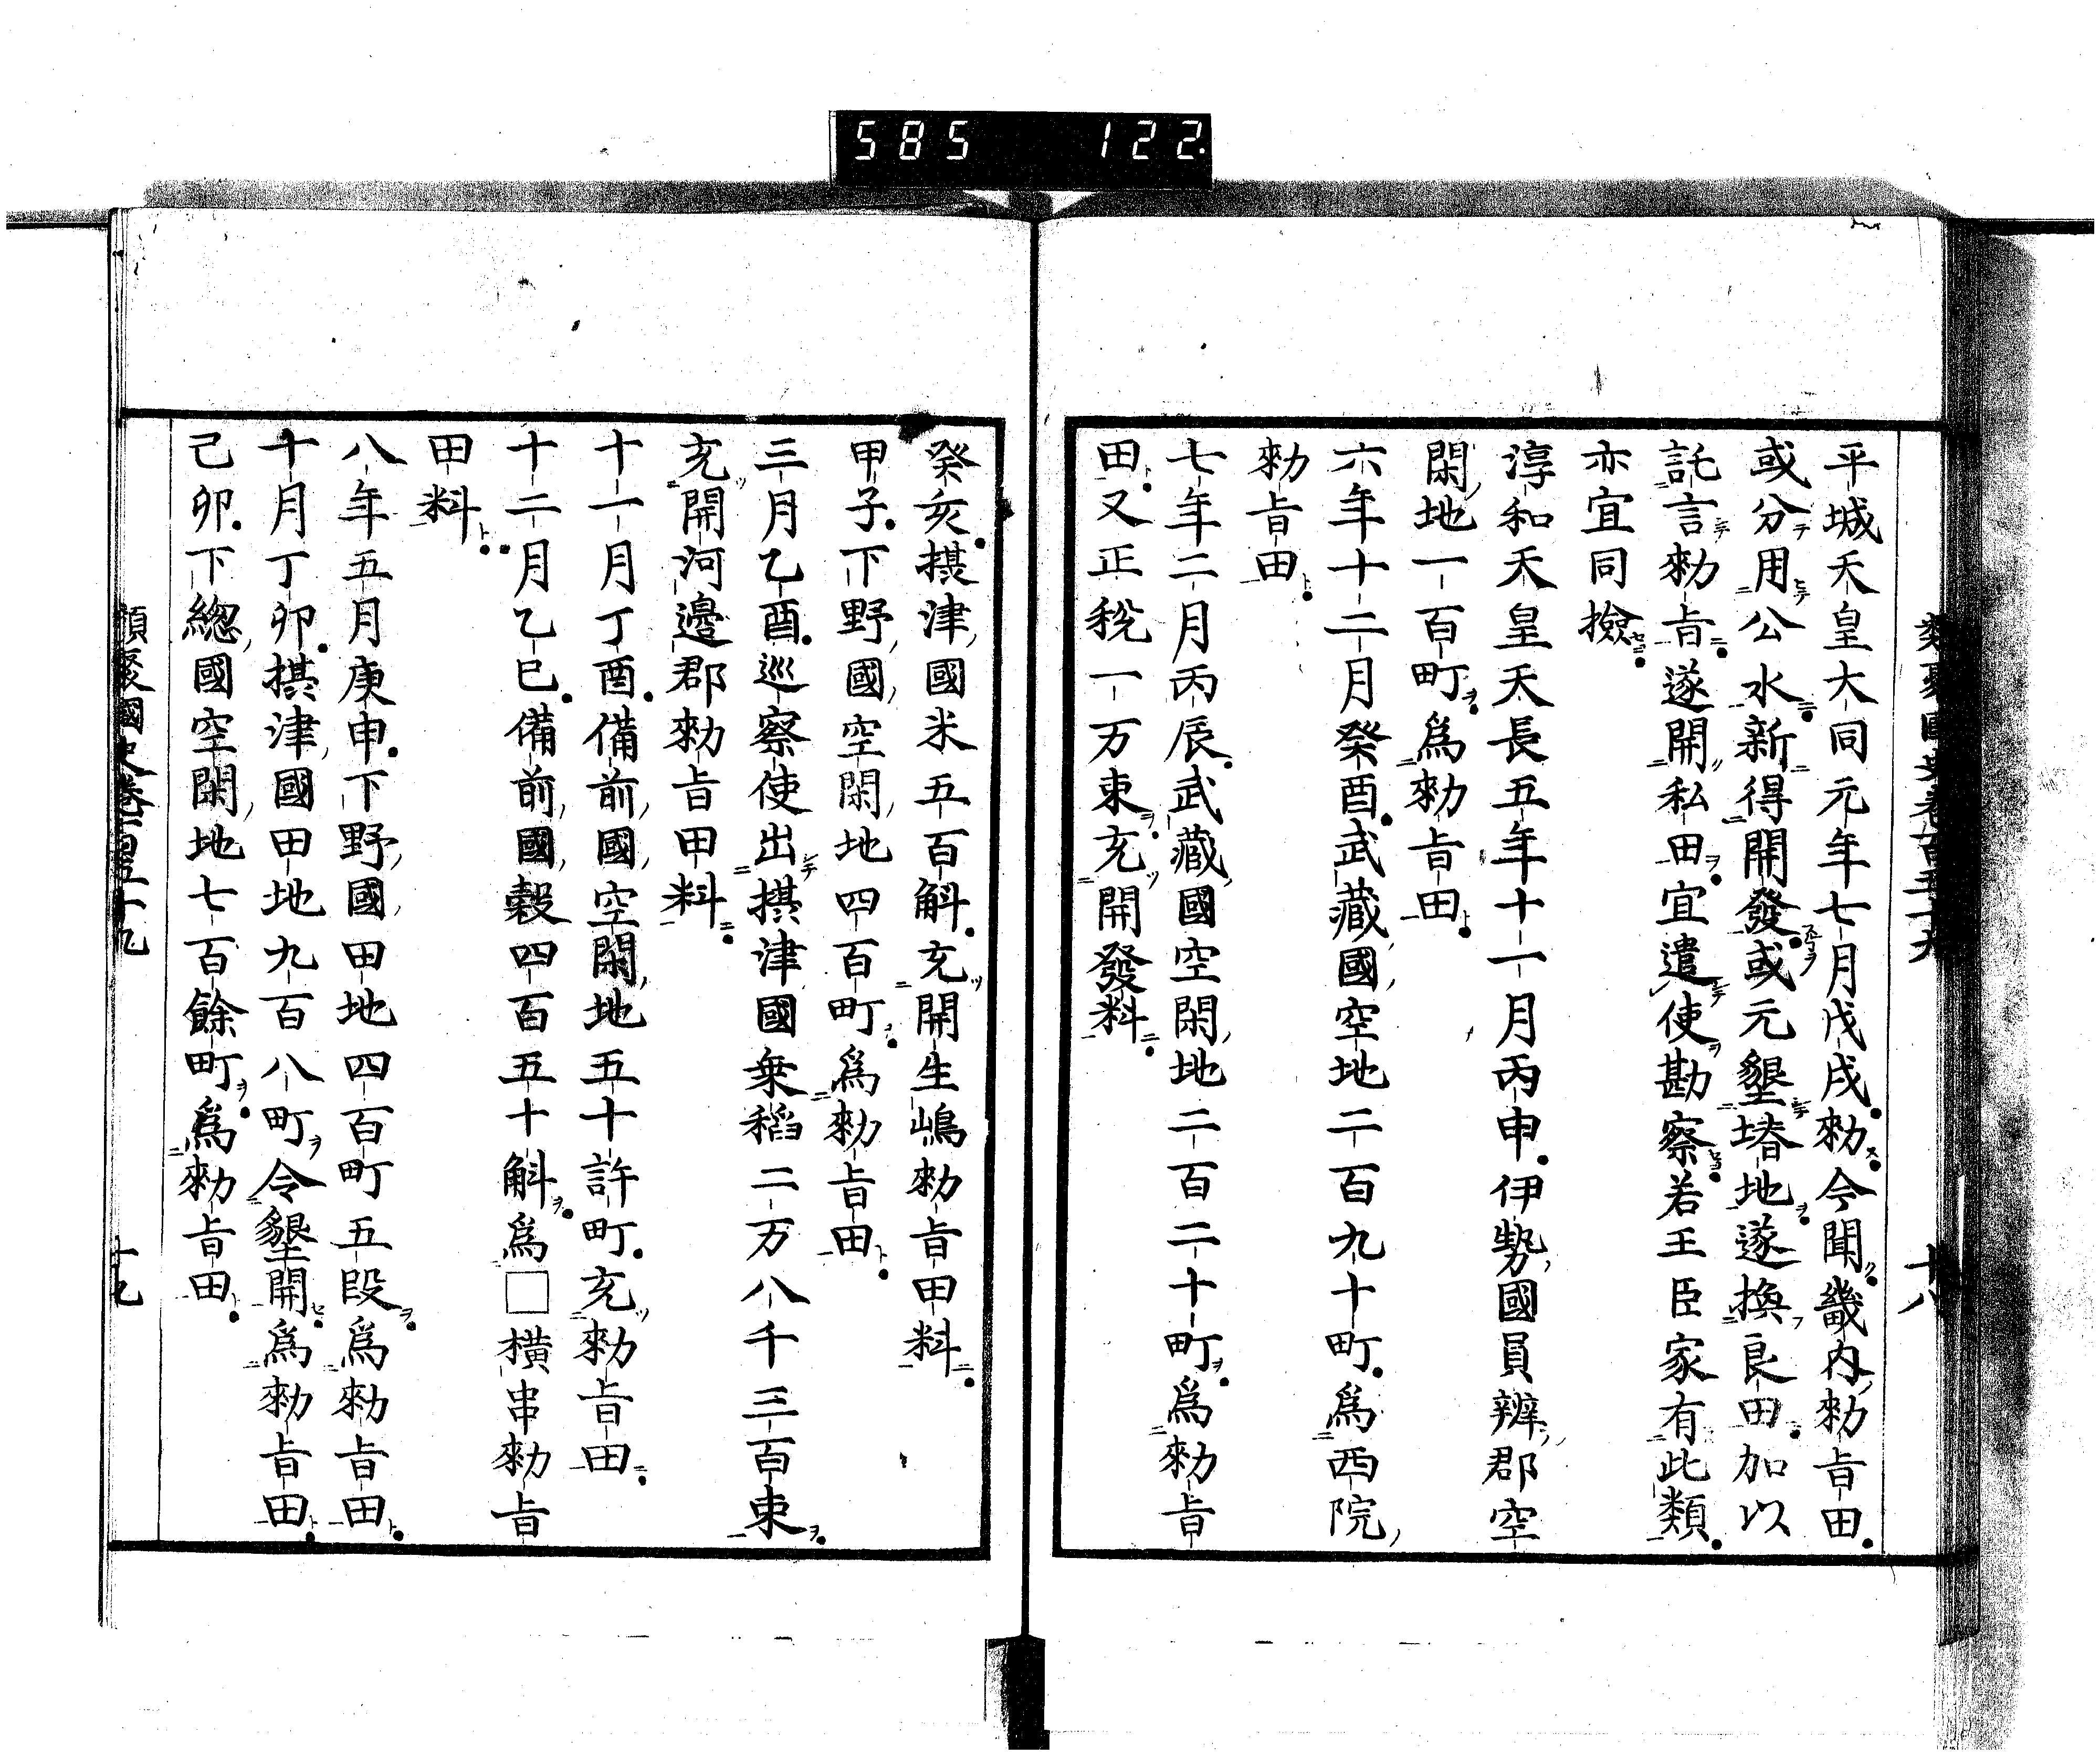 585 122
類聚國史卷百五十九 十八
平城天皇大同元年七月戊戌勑今聞畿内勑旨田
或分用公水新得開發或元墾堉地遂換良田加以
託言勑旨遂開私田宜遣使勘察若王臣家有此類
亦宜同撿
淳和天皇天長五年十一月丙申伊勢國員辨郡空
閑地一百町爲勑旨田
六年十二月癸酉武藏國空地二百九十町爲西院
勑旨田
七年二月丙辰武藏國空閑地二百二十町爲勑旨
田又正税一万束充開發料
癸亥摂津國米五百斛充開生嶋勑旨田料
甲子下野國空閑地四百町爲勑旨田
三月乙酉巡察使出摂津國乗稻二万八千三百束
充開河邊郡勑旨田料
十一月丁酉備前國空閑地五十許町充勑旨田
十二月乙巳備前國穀四百五十斛爲□横串勑旨
田料
八年五月庚申下野國田地四百町五段爲勑旨田
十月丁卯摂津國田地九百八町令墾開爲勑旨田
己卯下総國空閑地七百餘町爲勑旨田
類聚國史卷百五十九 十九